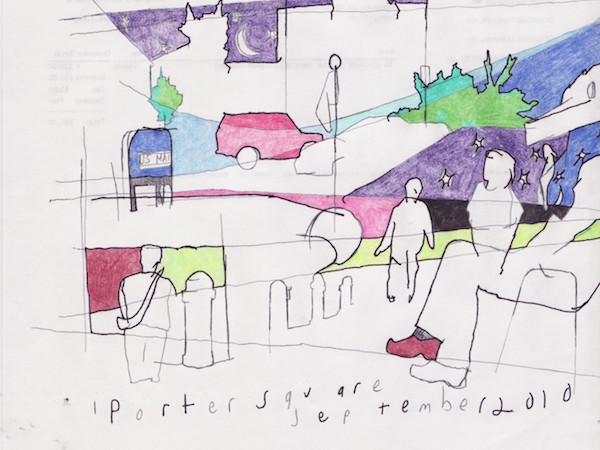 US MAI
porter square
september 2010